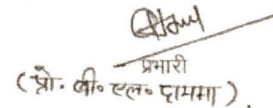 प्रभारी
(प्रो. बी. एल. दामामा)